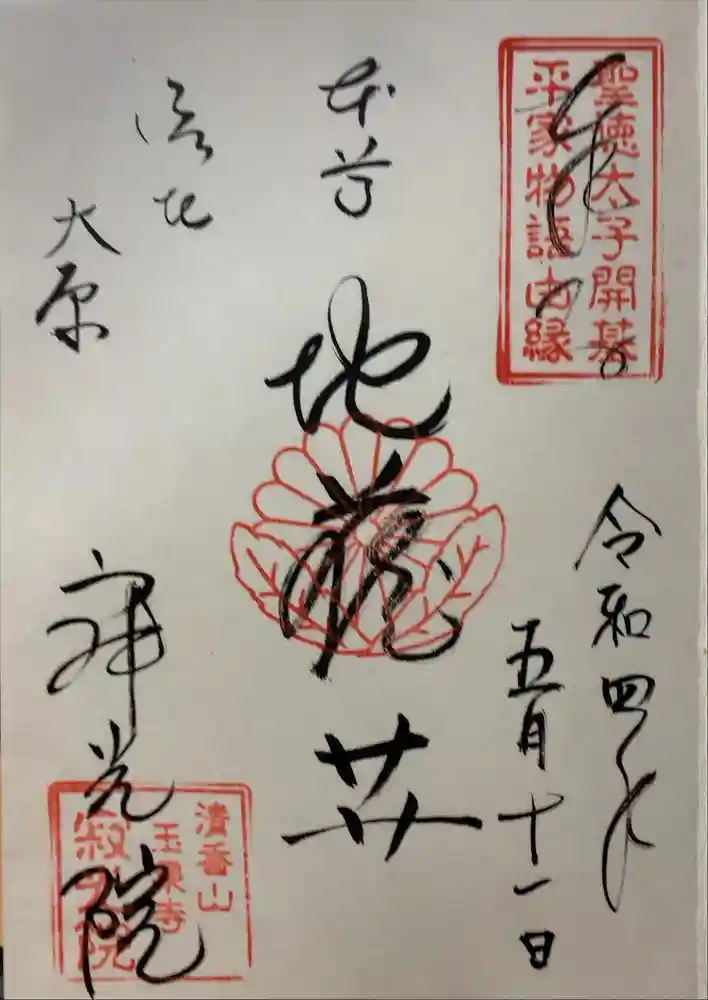 聖徳太子開基
平家物語由縁
奉拝
令和四年
五月十一日
本尊
地蔵䒑
洛北
大原
寂光院
清香山
玉泉寺
寂光院